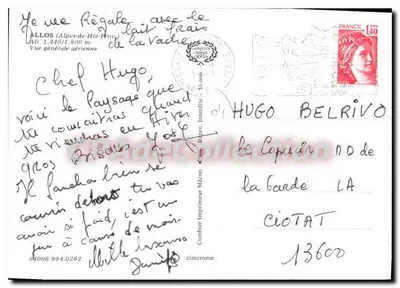 Je me Régale avec le
lait frais
de la vache
ALLOS (Alpes-de-Hte-Prov.)
Alt. 1.440/1.800 m
Vue générale aérienne
Chef Hugo,
voici le Paysage que
tu connaitras quand
tu viendras en Hiver
gros bisous
Il faudra bien se
couvrir dehors tu vas
avoir si froid, c'est un
peu à cause de
Mille bisous
04006 994.0262 cimcrome
Combier Imprimeur Mâcon
Interdite
FRANCE
1,40
HUGO BELRIVO
Le Capucin ND de
la Garde LA
CIOTAT
13600